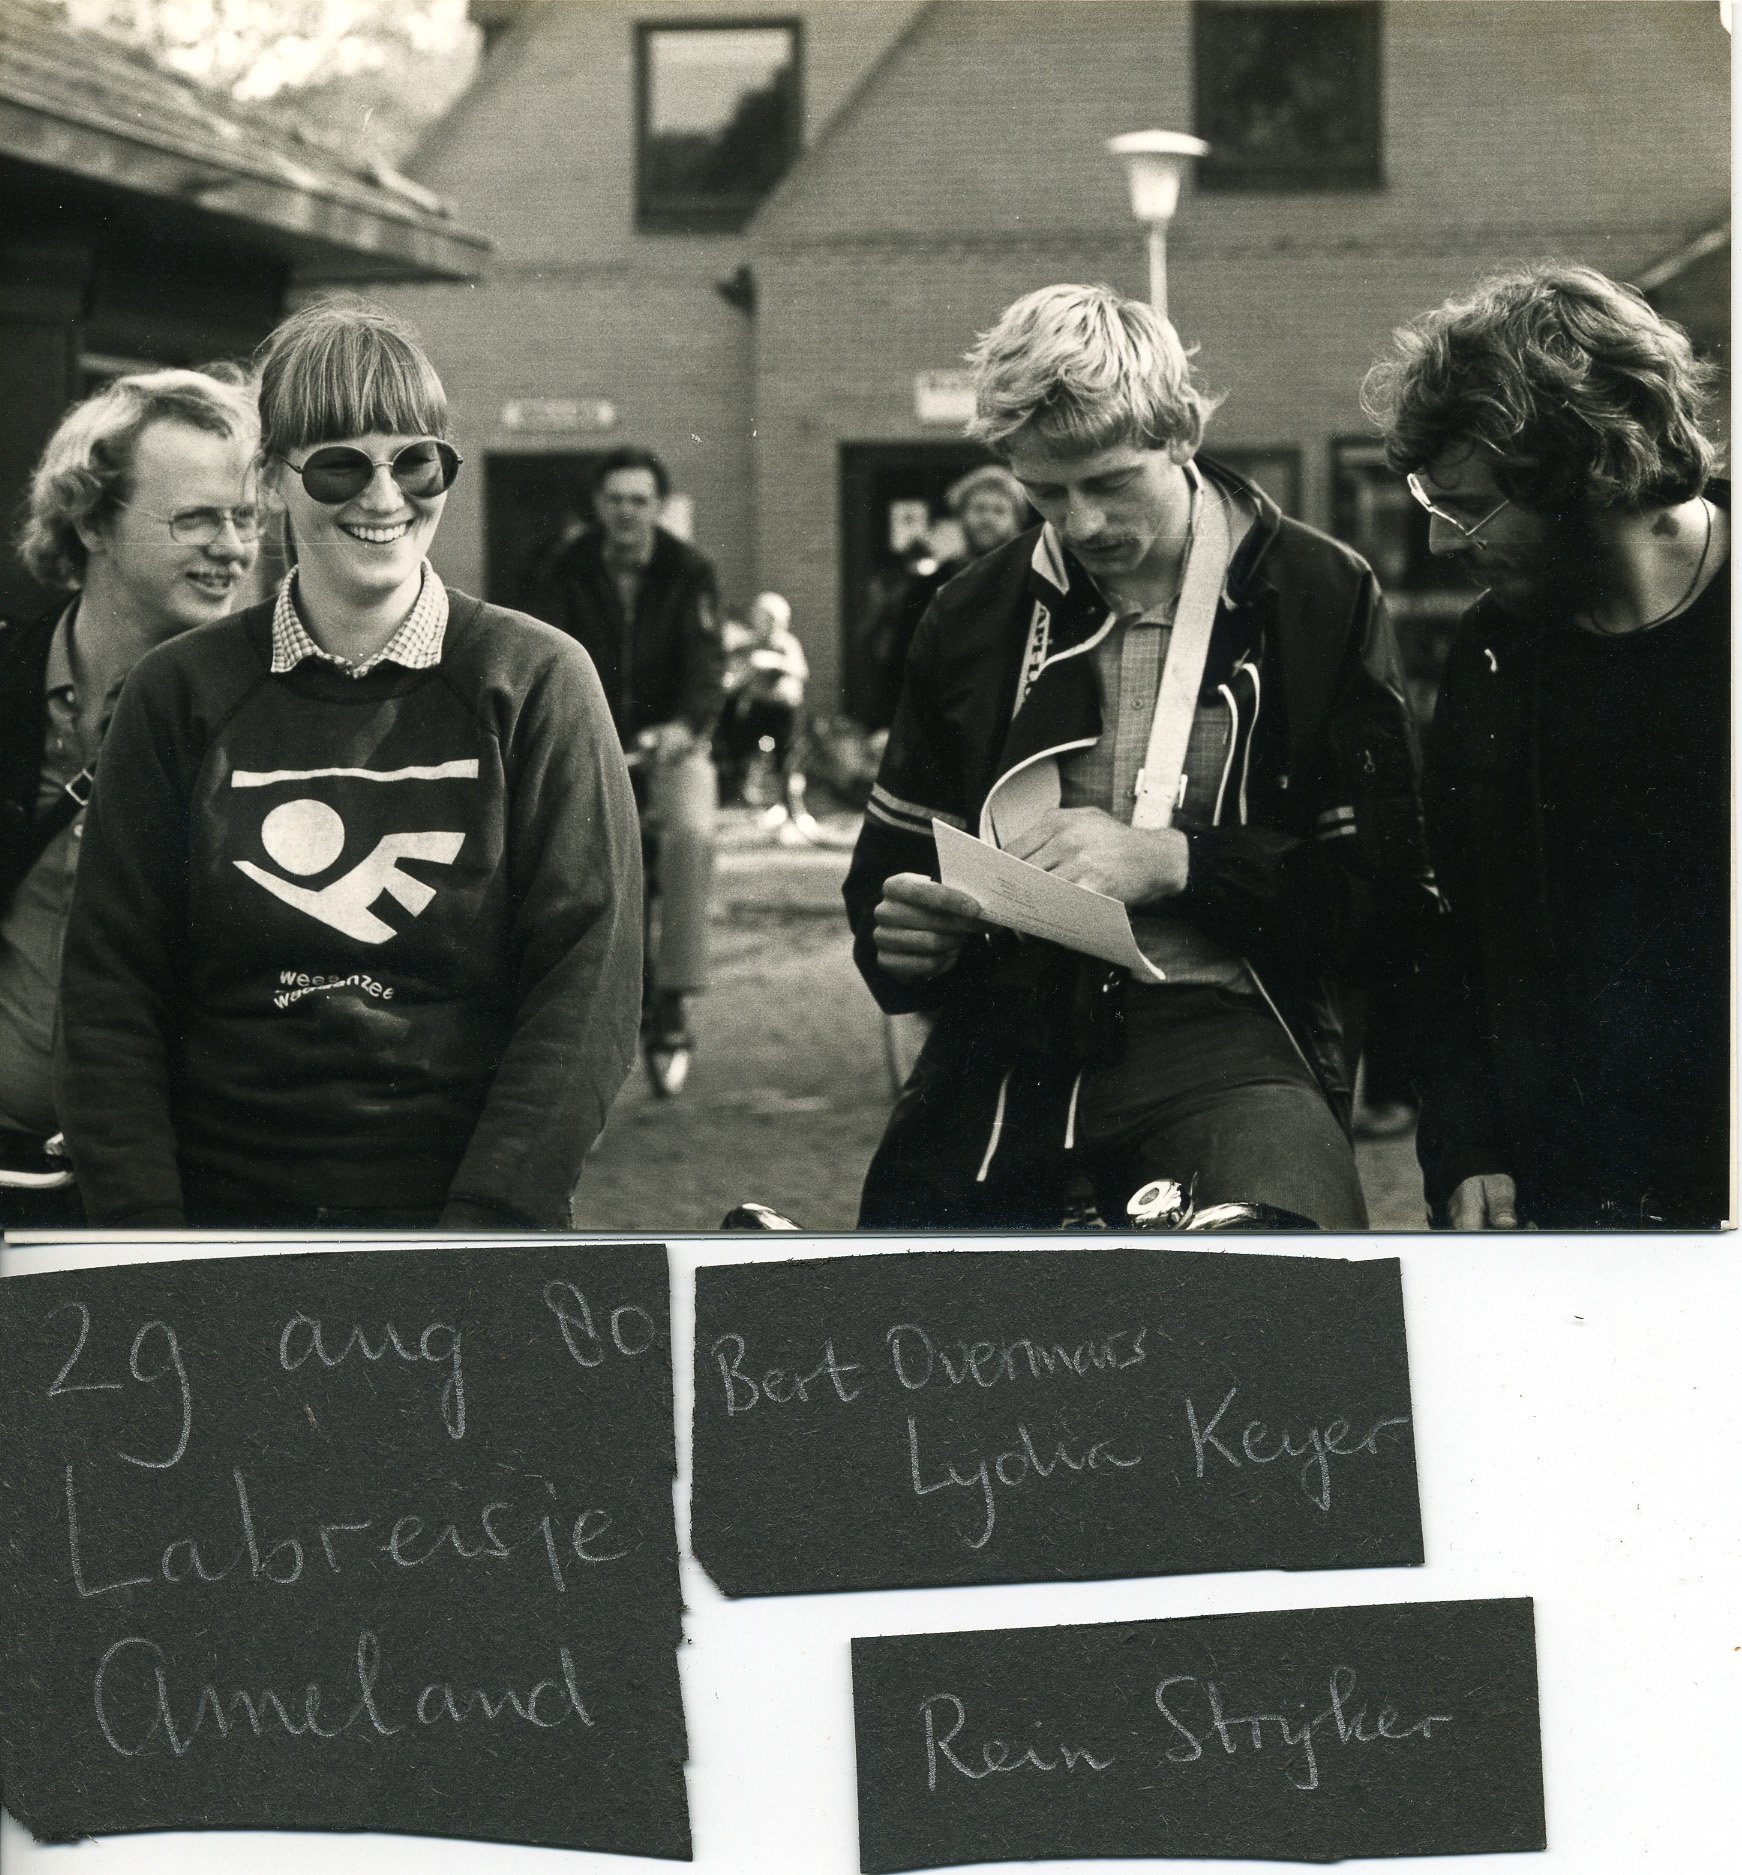 weesanzee
29 aug 80
Labreisje
Ameland
Bert Overmars
Lydia Keyer
Rein Strijker